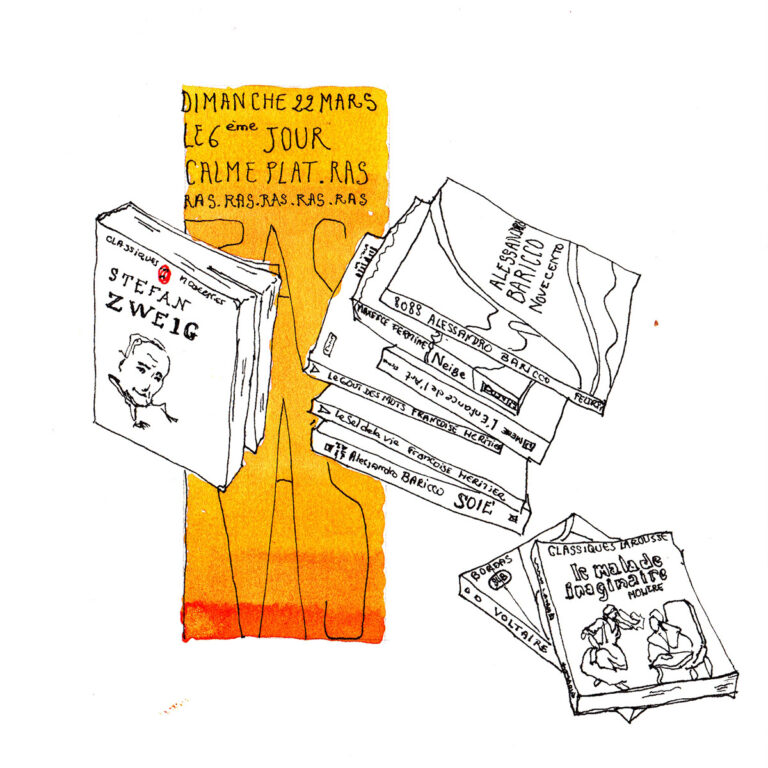 DIMANCHE 22 MARS
LE 6ème JOUR
CALME PLAT. RAS
RAS. RAS. RAS. RAS. RAS
RAS
CLASSIQUES MODERNES
STEFAN
ZWEIG
ALESSANDRO
BARICCO
NOVECENTO
8088 ALESSANDRO BARICCO FELTRI
MAXENCE FERMINE Neige
L'Enfance de l'Art
LE GOUT DES MOTS FRANÇOISE HERITIER
Le Sel de la vie FRANÇOISE HERITIER
Alessandro BARICCO SOIE
BORDAS
VOLTAIRE
CLASSIQUES LAROUSSE
le malade
imaginaire
MOLIERE